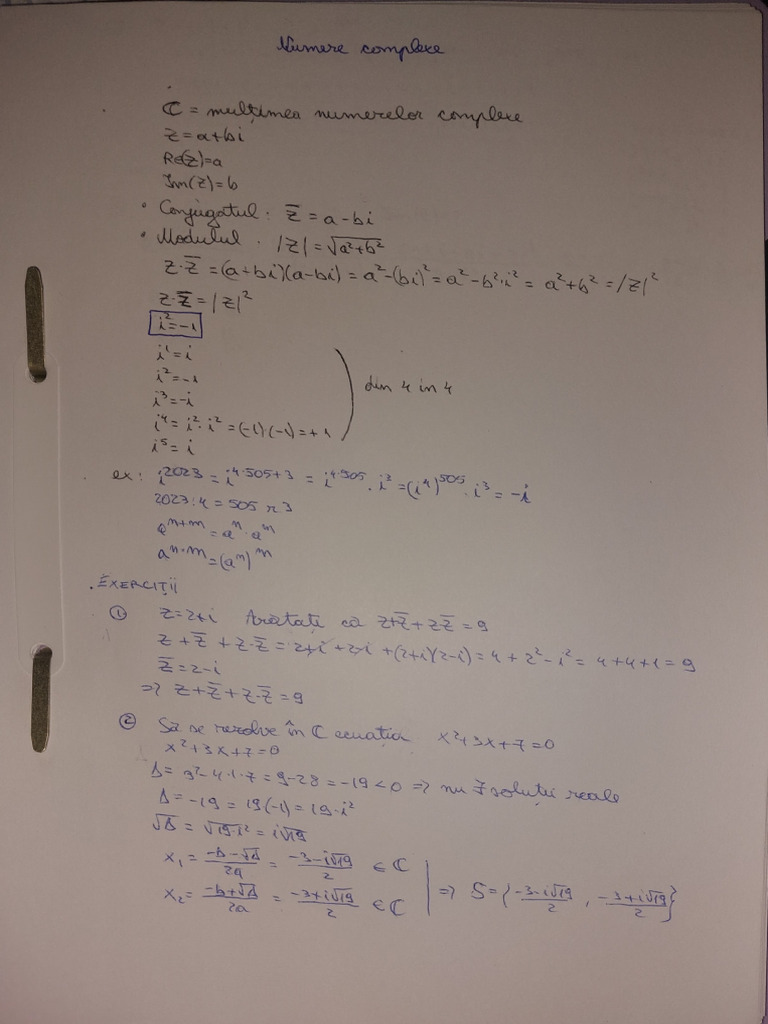 Numere complexe
ℂ = mulțimea numerelor complexe
z = a+bi
Re(z)=a
Im(z)=b
• Conjugatul: z̅ = a-bi
• Modulul: |z| = √(a²+b²)
z·z̅ = (a+bi)(a-bi) = a²-(bi)² = a²-b²·i² = a²+b² = |z|²
z·z̅ = |z|²
i²=-1
i¹=i
i²=-1
i³=-i
i⁴= i²·i² = (-1)(-1) = +1
i⁵= i
din 4 în 4
ex: i²⁰²³ = i⁴·⁵⁰⁵⁺³ = i⁴·⁵⁰⁵ · i³ = (i⁴)⁵⁰⁵ · i³ = -i
2023:4 = 505 r 3
aⁿ⁺ᵐ = aⁿ · aᵐ
aⁿ·ᵐ = (aⁿ)ᵐ
. EXERCIȚII
① z=2+i Arătați că z+z̅+zz̅=9
z+z̅+z·z̅ = 2+i+2-i+(2+i)(2-i) = 4+2²-i² = 4+4+1 = 9
z̅=2-i
=> z+z̅+z·z̅=9
② Să se rezolve în ℂ ecuația x²+3x+7=0
x²+3x+7=0
Δ= 3²-4·1·7 = 9-28 = -19 < 0 => nu ∃ soluții reale
Δ=-19 = 19(-1) = 19·i²
√Δ = √(19·i²) = i√19
x₁ = (-b-√Δ)/2a = (-3-i√19)/2 ∈ ℂ
x₂ = (-b+√Δ)/2a = (-3+i√19)/2 ∈ ℂ
=> S={(-3-i√19)/2, (-3+i√19)/2}